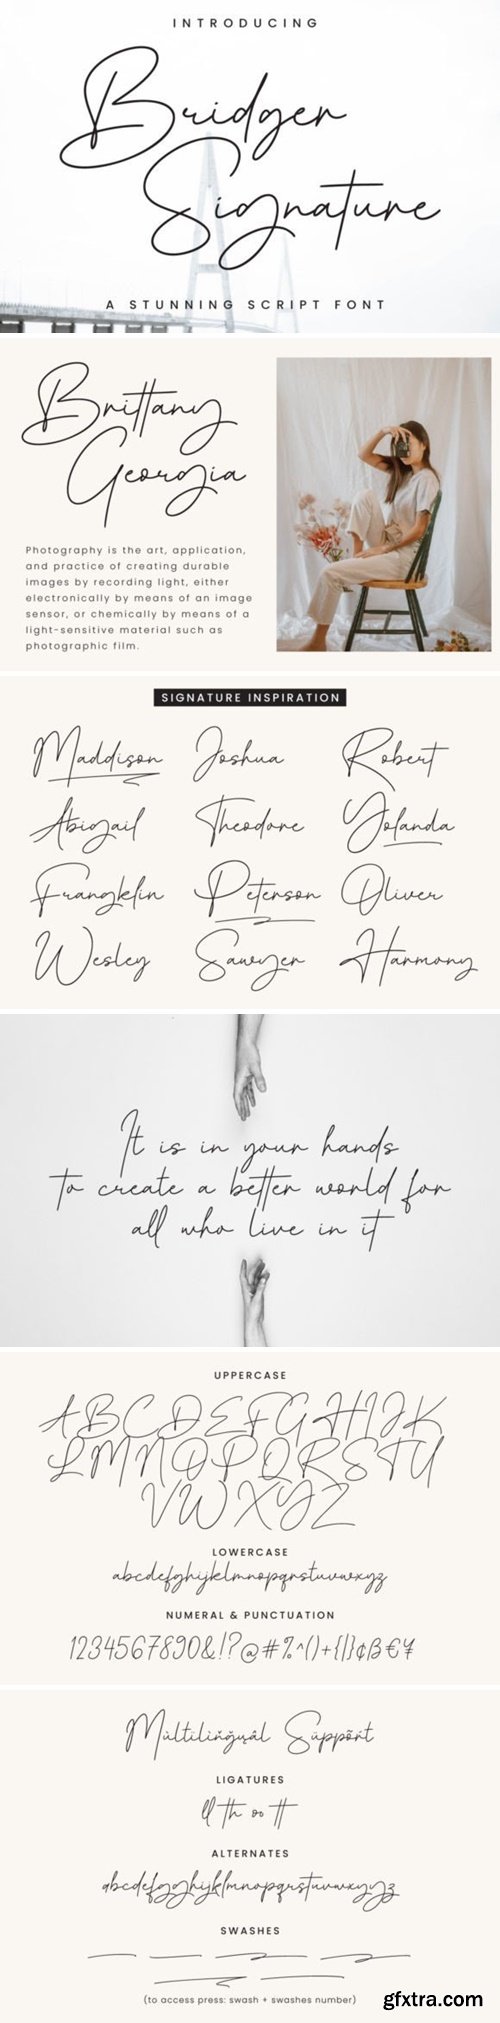 INTRODUCING
Bridger
Signature
A STUNNING SCRIPT FONT
Brittany
Georgia
Photography is the art, application,
and practice of creating durable
images by recording light, either
electronically by means of an image
sensor, or chemically by means of a
light-sensitive material such as
photographic film.
SIGNATURE INSPIRATION
Maddison Joshua Robert
Abigail Theodore Yolanda
Frangklin Peterson Oliver
Wesley Sawyer Harmony
It is in your hands
to create a better world for
all who live in it
UPPERCASE
ABCDEFGHIJK
LMNOPQRSTU
VWXYZ
LOWERCASE
abcdefghijklmnopqrstuvwxyz
NUMERAL & PUNCTUATION
1234567890&!?@#%^()+{|}¢β€¥
Mültilïňğụâl Süppõŕt
LIGATURES
ll th oo tt
ALTERNATES
abcdefgghijklmnopqrstuvwxyyz
SWASHES
(to access press: swash + swashes number)
gfxtra.com